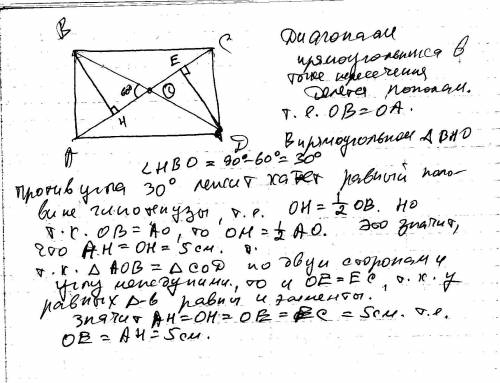 B
E
C
60°
O
H
A
D
Диагонали
прямоугольника в
точке пересечения
делятся пополам.
т.е. OB=OA.
В прямоугольном △BHO
∠HBO = 90°-60°= 30°
Против угла 30° лежит катет равный поло-
вине гипотенузы, т.е. OH=½OB. Но
т.к. OB=AO, то OH=½AO. Это значит,
что AH=OH=5см.
т.к. △AOB=△COD по двум сторонам и
углу между ними, то и OE=EC, т.к. у
равных △-в равны и элементы.
Значит AH=OH=OE=EC=5см. т.е.
OE=AH=5см.